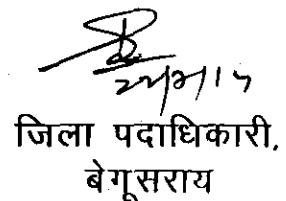 जिला पदाधिकारी,
बेगूसराय